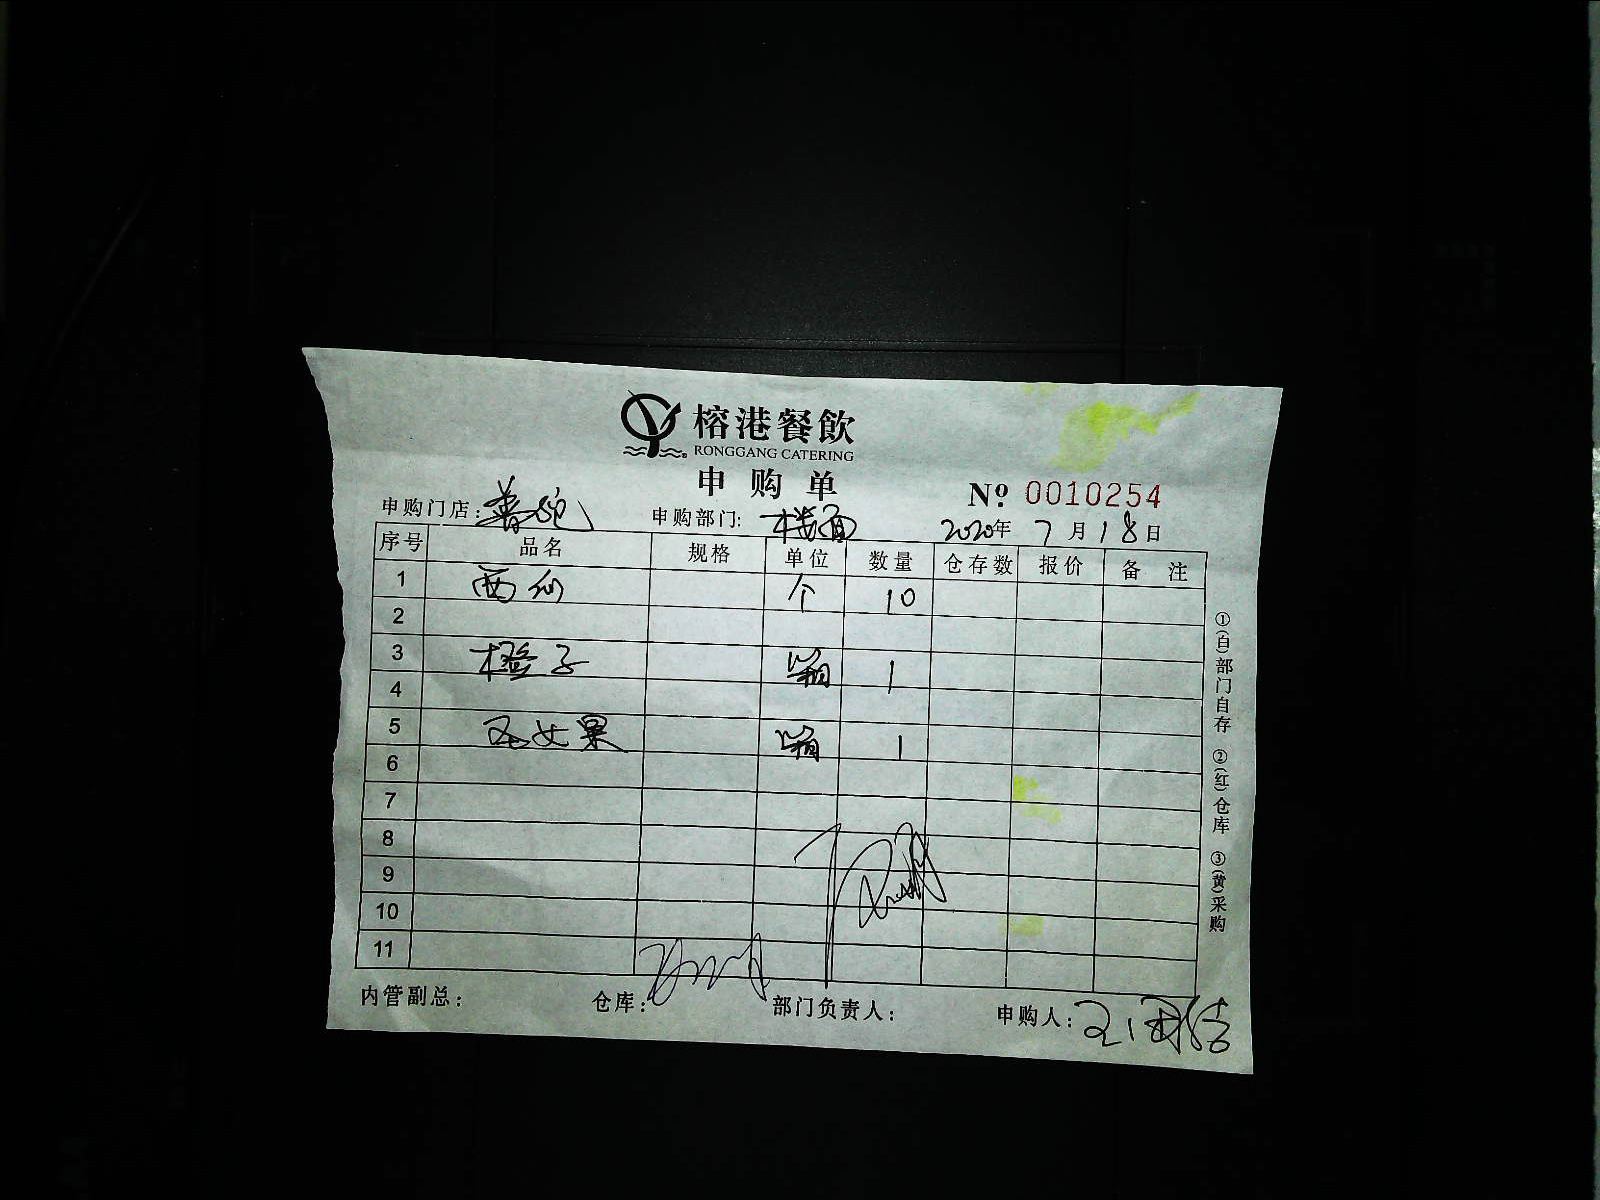 榕港餐飲
RONGGANG CATERING
申购单
№ 0010254
申购门店： 申购部门: 楼面 2020年 7月18日
序号 品名 规格 单位 数量 仓存数 报价 备注
1 西仙 个 10
2
3 橙子 箱 1
4
5 圣女果 箱 1
6
7
8
9
10
11
内管副总： 仓库： 部门负责人： 申购人：
①(白)部门自存 ②(红)仓库 ③(黄)采购